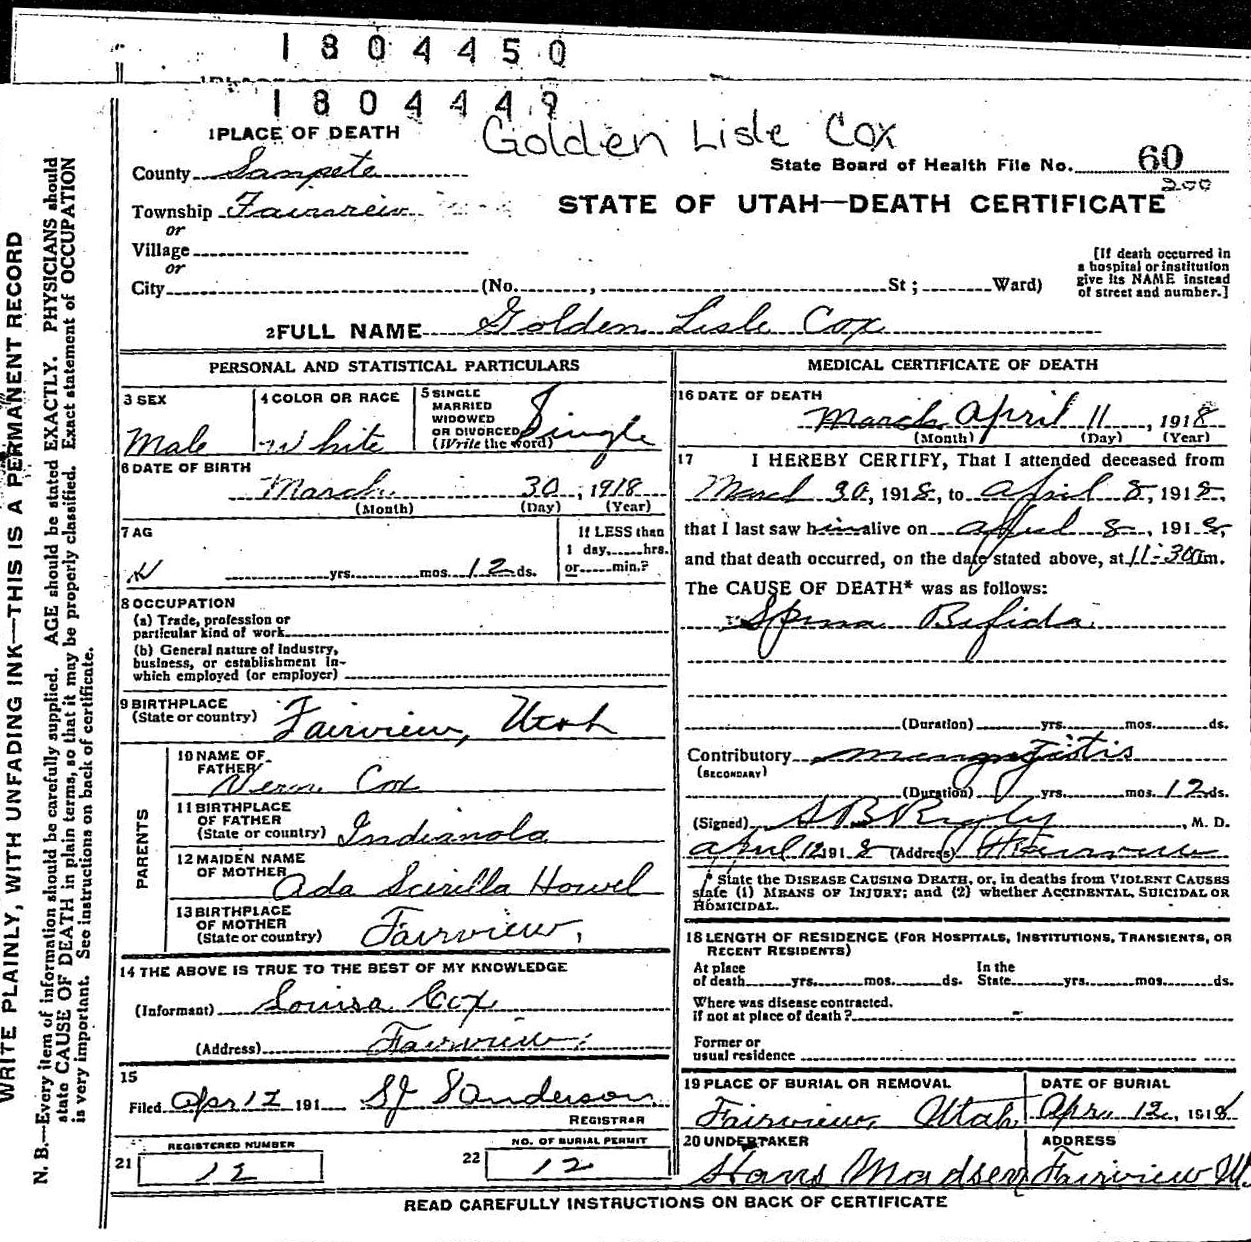 1804450
1804449
1 PLACE OF DEATH
Golden Lisle Cox
County Sanpete
State Board of Health File No. 60
200
Township Fairview
STATE OF UTAH—DEATH CERTIFICATE
or
Village
or
City (No. , St ; Ward)
[If death occurred in
a hospital or institution
give its NAME instead
of street and number.]
2 FULL NAME Golden Lisle Cox
PERSONAL AND STATISTICAL PARTICULARS
3 SEX
Male
4 COLOR OR RACE
White
5 SINGLE
MARRIED
WIDOWED
OR DIVORCED
(Write the word)
Single
6 DATE OF BIRTH
March 30, 1918
(Month) (Day) (Year)
7 AG
yrs. mos. 12 ds.
If LESS than
1 day, hrs.
or min.?
8 OCCUPATION
(a) Trade, profession or
particular kind of work
(b) General nature of industry,
business, or establishment in-
which employed (or employer)
9 BIRTHPLACE
(State or country) Fairview, Utah
PARENTS
10 NAME OF
FATHER Vern Cox
11 BIRTHPLACE
OF FATHER
(State or country) Indianola
12 MAIDEN NAME
OF MOTHER Ada Scirilla Howel
13 BIRTHPLACE
OF MOTHER
(State or country) Fairview,
14 THE ABOVE IS TRUE TO THE BEST OF MY KNOWLEDGE
(Informant) Louisa Cox
(Address) Fairview
15
Filed Apr 12 191 SJ Sanderson
REGISTRAR
REGISTERED NUMBER
21 12
NO. OF BURIAL PERMIT
22 12
MEDICAL CERTIFICATE OF DEATH
16 DATE OF DEATH
March April 11, 1918
(Month) (Day) (Year)
17 I HEREBY CERTIFY, That I attended deceased from
March 30, 1918, to April 8, 1918,
that I last saw him alive on April 8, 1918,
and that death occurred, on the date stated above, at 11-30 am.
The CAUSE OF DEATH* was as follows:
Spina Bifida
(Duration) yrs. mos. ds.
Contributory
(SECONDARY)
(Duration) yrs. mos. 12 ds.
(Signed) , M. D.
April 12 1918 (Address) Fairview
* State the DISEASE CAUSING DEATH, or, in deaths from VIOLENT CAUSES
state (1) MEANS OF INJURY; and (2) whether ACCIDENTAL, SUICIDAL OR
HOMICIDAL.
18 LENGTH OF RESIDENCE (FOR HOSPITALS, INSTITUTIONS, TRANSIENTS, OR
RECENT RESIDENTS)
At place
of death yrs. mos. ds.
In the
State yrs. mos. ds.
Where was disease contracted.
if not at place of death?
Former or
usual residence
19 PLACE OF BURIAL OR REMOVAL
Fairview, Utah
DATE OF BURIAL
Apr. 12, 1918
20 UNDERTAKER
Hans Madsen
ADDRESS
Fairview U.
READ CAREFULLY INSTRUCTIONS ON BACK OF CERTIFICATE
WRITE PLAINLY, WITH UNFADING INK—THIS IS A PERMANENT RECORD
N. B.—Every item of information should be carefully supplied. AGE should be stated EXACTLY. PHYSICIANS should
state CAUSE OF DEATH in plain terms, so that it may be properly classified. Exact statement of OCCUPATION
is very important. See instructions on back of certificate.